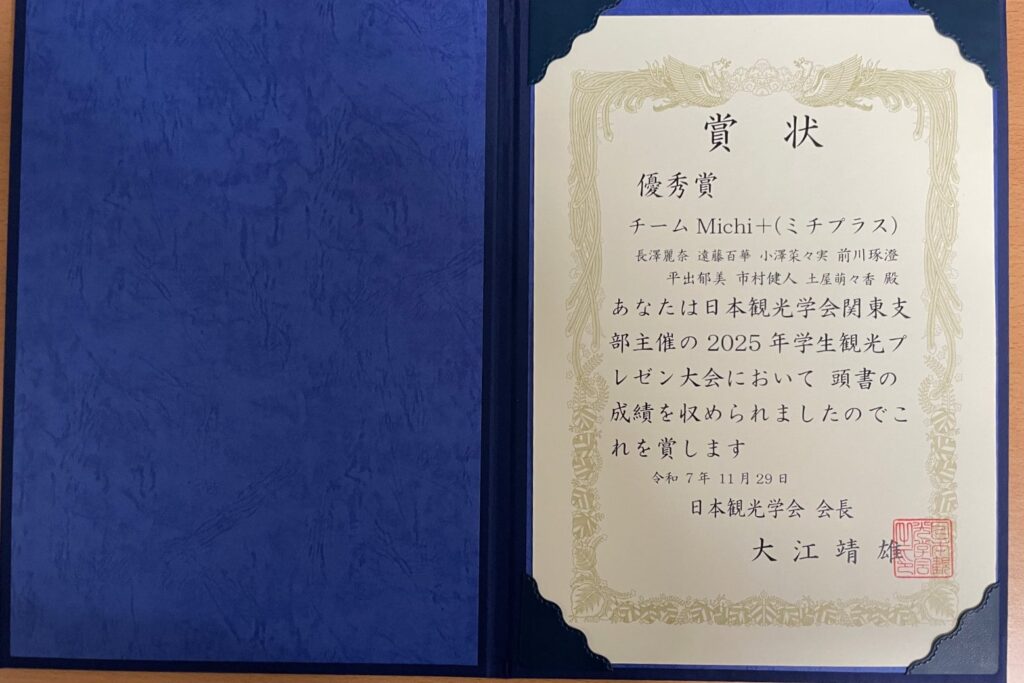 賞 状
優秀賞
チーム Michi＋(ミチプラス)
長澤麗奈 遠藤百華 小澤菜々実 前川琢澄
平出郁美 市村健人 土屋萌々香 殿
あなたは日本観光学会関東支
部主催の 2025 年学生観光プ
レゼン大会において 頭書の
成績を収められましたのでこ
れを賞します
令和 7 年 11 月 29 日
日本観光学会 会長
大 江 靖 雄